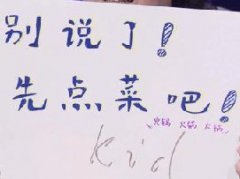 别说了！
先点菜吧！
火锅 火锅 火锅
Kid